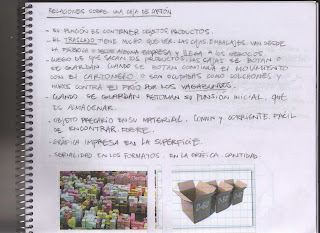 RELACIONES SOBRE UNA CAJA DE CARTÓN
- SU FUNCIÓN ES CONTENER OBJETOS PRODUCTOS.
- AL TRASLADO TIENE MUCHO QUE VER. LAS CAJAS EMBALAJES VAN DESDE
LA FÁBRICA O DESDE ALGUNA EMPRESA Y LLEGA A LOS NEGOCIOS.
- LUEGO DE QUE SACAN LOS PRODUCTOS, LAS CAJAS SE BOTAN O
SE GUARDAN. CUANDO SE BOTAN CONTINÚA EL MOVIMIENTO
CON EL CARTONERO O SON OCUPADAS COMO COLCHONES Y
MUROS CONTRA EL FRÍO POR LOS VAGABUNDOS.
- CUANDO SE GUARDAN RETOMAN SU FUNCIÓN INICIAL, QUE
ES ALMACENAR.
- OBJETO PRECARIO EN SU MATERIAL. COMÚN Y CORRIENTE FÁCIL
DE ENCONTRAR. POBRE.
- GRÁFICA IMPRESA EN LA SUPERFICIE.
- SERIALIDAD EN LOS FORMATOS. EN LA GRÁFICA. CANTIDAD.